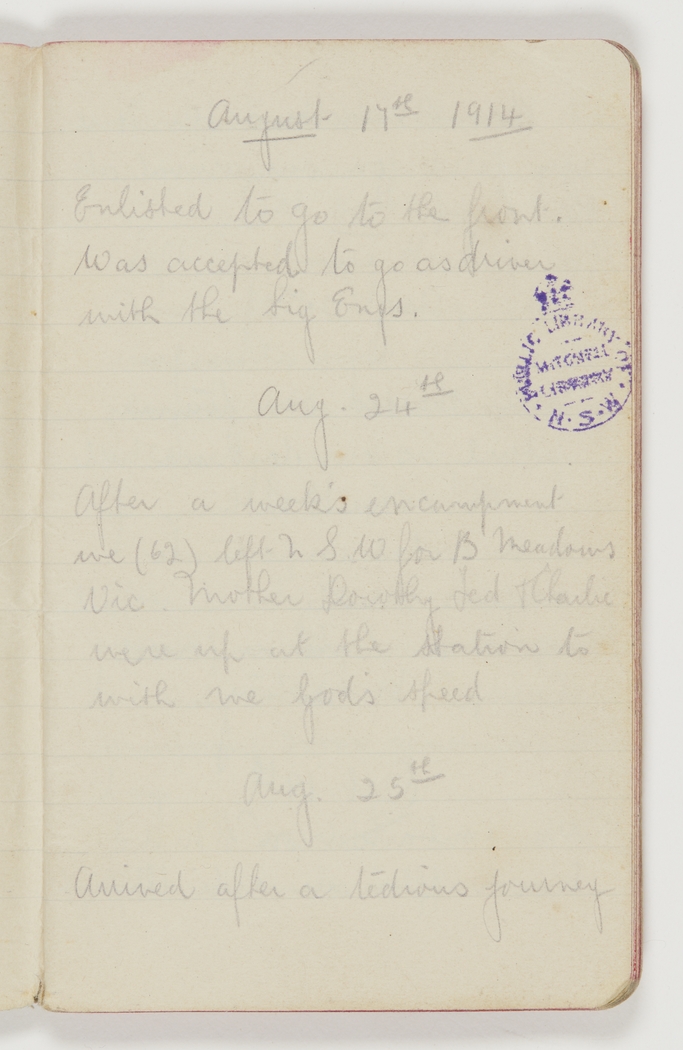 August 17th 1914
Enlisted to go to the front.
Was accepted to go as driver
with the Sig Engs.
Aug. 24th
After a week's encampment
we (62) left N S W for B Meadows
Vic. Mother Dorothy Ted & Charlie
were up at the station to
wish me God's speed
Aug. 25th
Arrived after a tedious journey
PUBLIC LIBRARY OF
MITCHELL
LIBRARY
N.S.W.